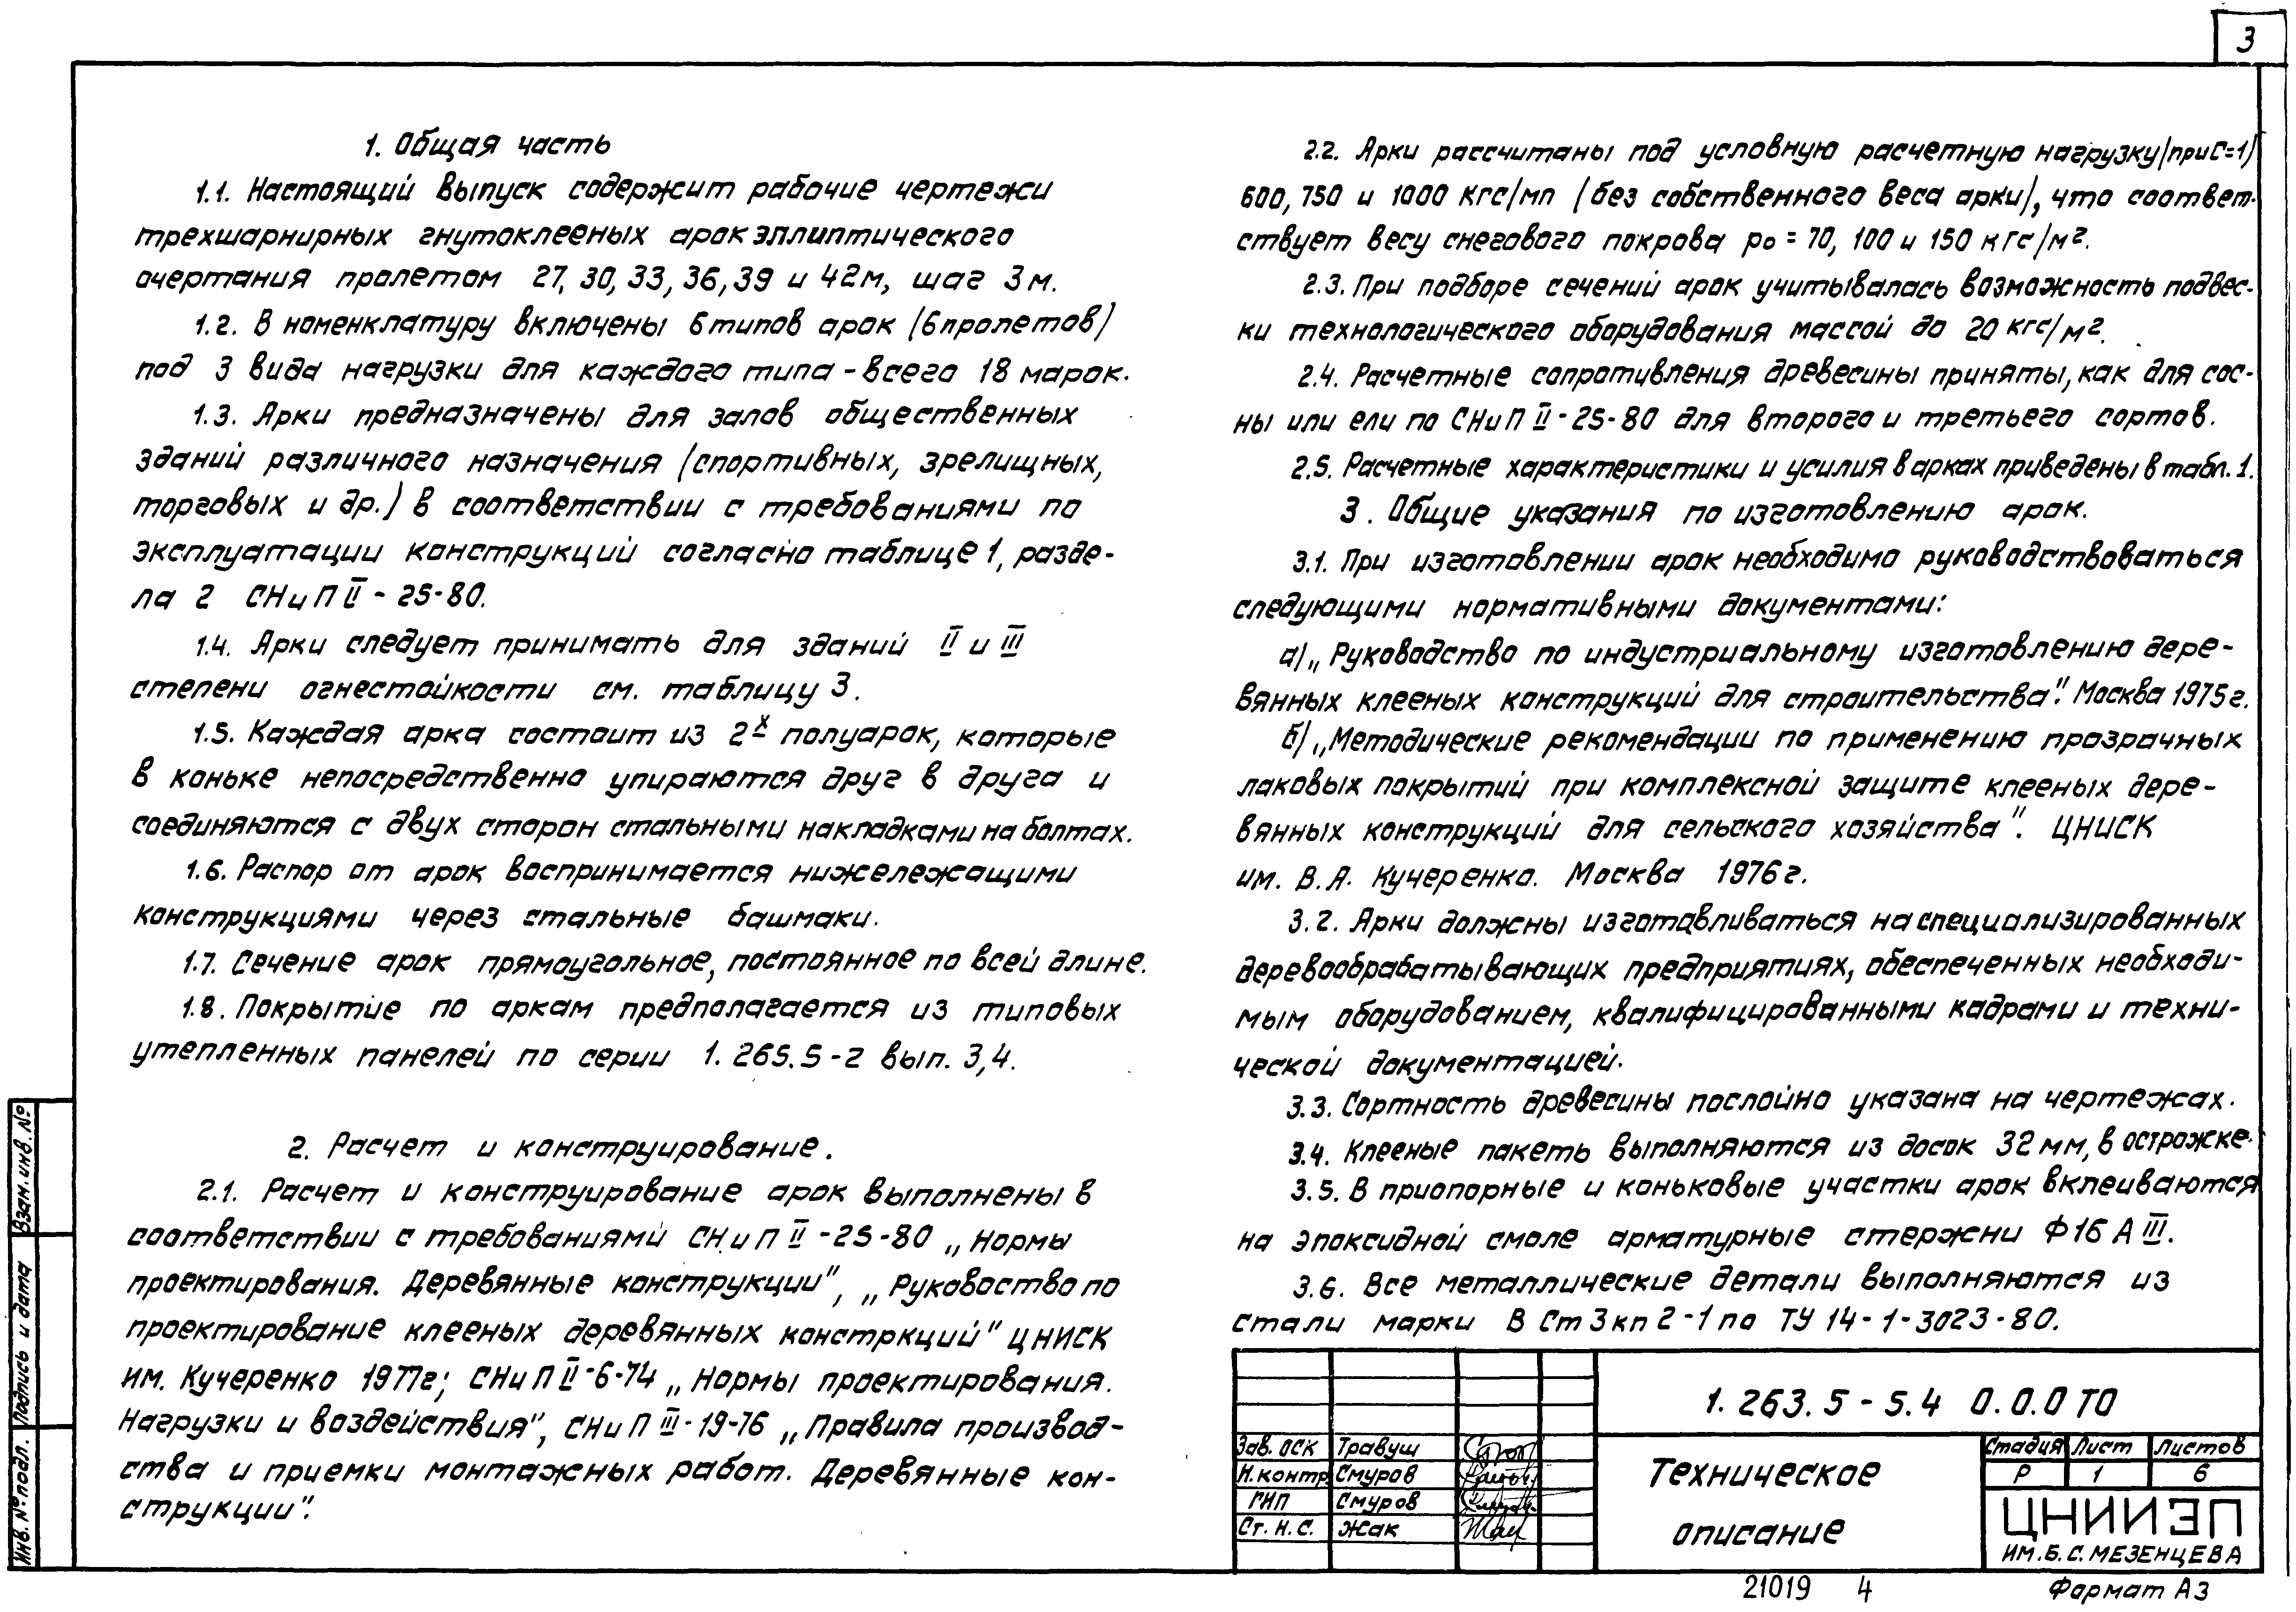 3
1. Общая часть
1.1. Настоящий выпуск содержит рабочие чертежи
трехшарнирных гнутоклееных арок эллиптического
очертания пролетом 27, 30, 33, 36, 39 и 42м, шаг 3м.
1.2. В номенклатуру включены 6 типов арок (6 пролетов)
под 3 вида нагрузки для каждого типа - всего 18 марок.
1.3. Арки предназначены для залов общественных
зданий различного назначения (спортивных, зрелищных,
торговых и др.) в соответствии с требованиями по
эксплуатации конструкций согласно таблице 1, разде-
ла 2 СНиП II - 25-80.
1.4. Арки следует принимать для зданий II и III
степени огнестойкости см. таблицу 3.
1.5. Каждая арка состоит из 2х полуарок, которые
в коньке непосредственно упираются друг в друга и
соединяются с двух сторон стальными накладками на болтах.
1.6. Распор от арок воспринимается нижележащими
конструкциями через стальные башмаки.
1.7. Сечение арок прямоугольное, постоянное по всей длине.
1.8. Покрытие по аркам предполагается из типовых
утепленных панелей по серии 1.265.5-2 вып. 3,4.
2. Расчет и конструирование.
2.1. Расчет и конструирование арок выполнены в
соответствии с требованиями СНиП II -25-80 „Нормы
проектирования. Деревянные конструкции", „Руковоство по
проектирование клееных деревянных констркций" ЦНИСК
им. Кучеренко 1977г; СНиП II-6-74 „Нормы проектирования.
Нагрузки и воздействия", СНиП III-19-76 „Правила производ-
ства и приемки монтажных работ. Деревянные кон-
струкции".
2.2. Арки рассчитаны под условную расчетную нагрузку/при С=1/
600, 750 и 1000 кгс/мп /без собственного веса арки/, что соответ-
ствует весу снегового покрова ро = 70, 100 и 150 кгс/м².
2.3. При подборе сечений арок учитывалась возможность подвес-
ки технологического оборудования массой до 20 кгс/м².
2.4. Расчетные сопротивления древесины приняты, как для сос-
ны или ели по СНиП II-25-80 для второго и третьего сортов.
2.5. Расчетные характеристики и усилия в арках приведены в табл. 1.
3. Общие указания по изготовлению арок.
3.1. При изготовлении арок необходимо руководствоваться
следующими нормативными документами:
а/„ Руководство по индустриальному изготовлению дере-
вянных клееных конструкций для строительства". Москва 1975г.
б/„Методические рекомендации по применению прозрачных
лаковых покрытий при комплексной защите клееных дере-
вянных конструкций для сельского хозяйства". ЦНИСК
им. В.А. Кучеренко. Москва 1976г.
3.2. Арки должны изготавливаться на специализированных
деревообрабатывающих предприятиях, обеспеченных необходи-
мым оборудованием, квалифицированными кадрами и техни-
ческой документацией.
3.3. Сортность древесины послойно указана на чертежах.
3.4. Клееные пакеть выполняются из досок 32мм, в острожке
3.5. В приопорные и коньковые участки арок вклеиваются
на эпоксидной смоле арматурные стержни Ф16 А III.
3.6. Все металлические детали выполняются из
стали марки В Ст 3 кп 2-1 по ТУ 14-1-3023-80.
Взам. инв. №
Подпись и дата
Инв. № подл.
1. 263. 5 - 5.4 0.0.0 ТО
Зав. ОСК Травуш
Н. контр Смуров
ГИП Смуров
Ст. Н. С. Жак
Техническое
описание
Стадия Лист Листов
Р 1 6
ЦНИИЭП
ИМ. Б. С. МЕЗЕНЦЕВА
21019 4
Формат А3